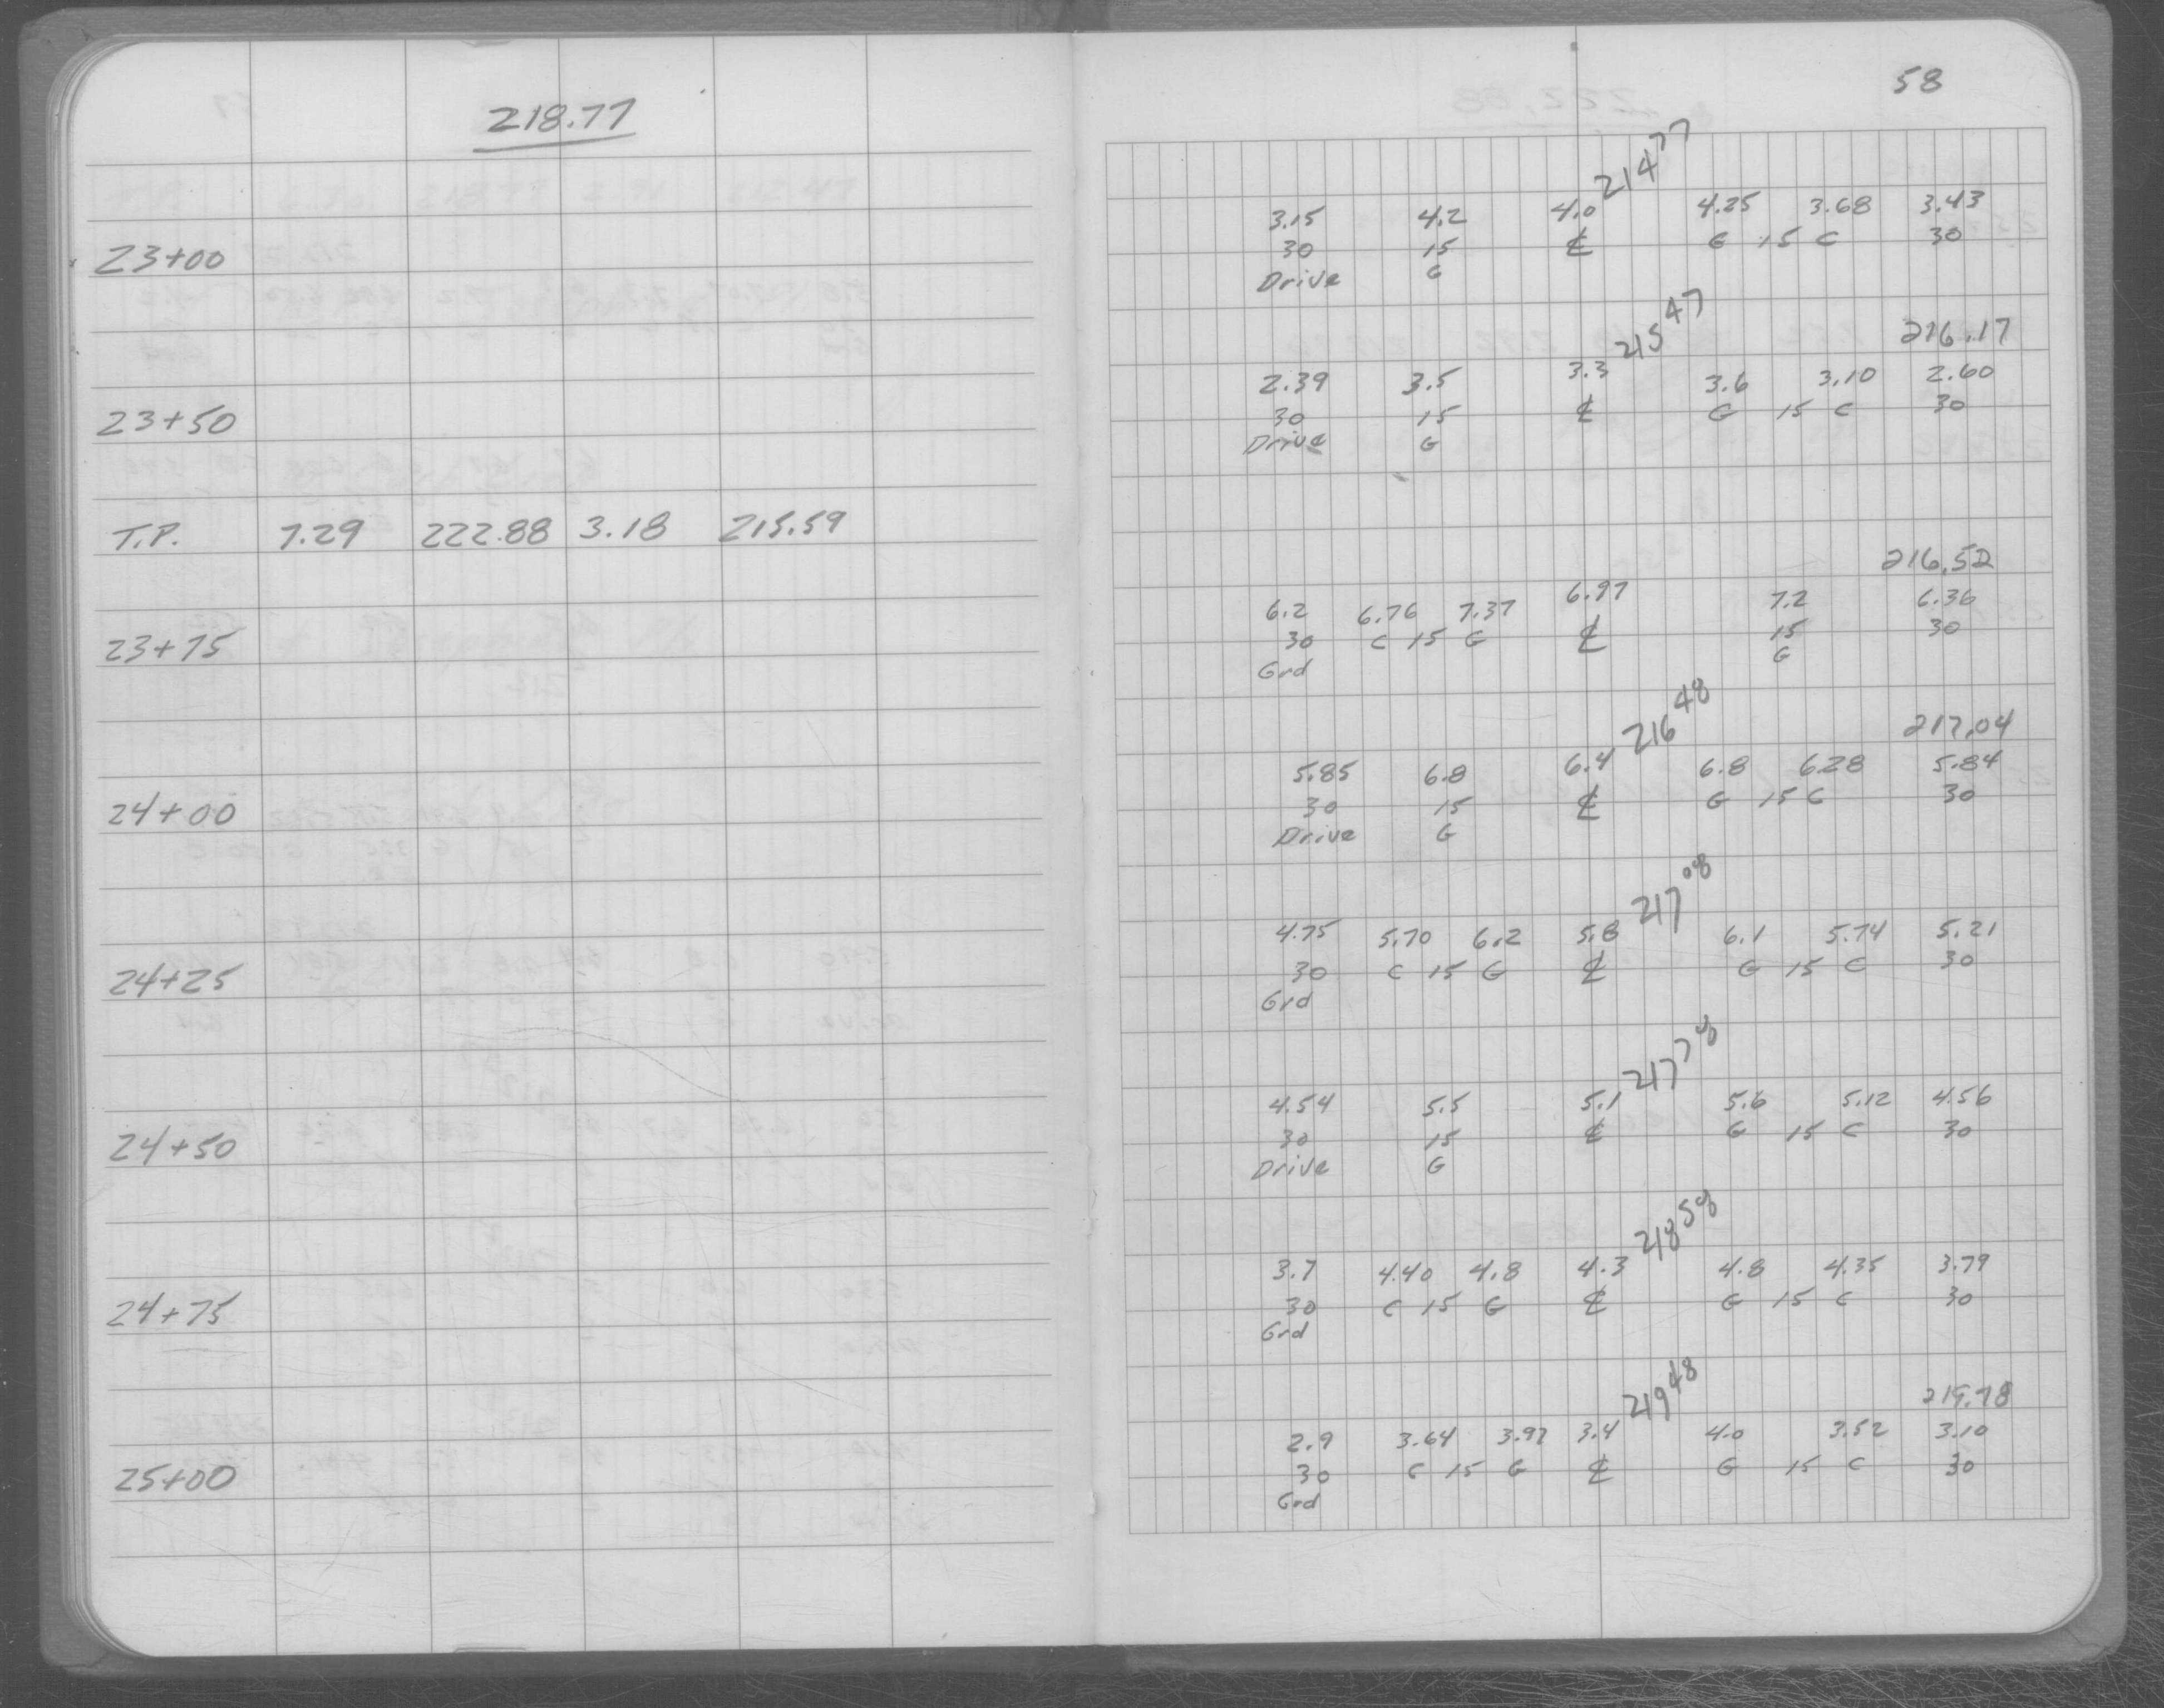 218.77
23+00
23+50
T.P. 7.29 222.88 3.18 215.59
23+75
24+00
24+25
24+50
24+75
25+00
58
214 77
3.15 4.2 4.0 4.25 3.68 3.43
30 15 ℄ G 15 C 30
Drive G
215 47
216.17
2.39 3.5 3.3 3.6 3.10 2.60
30 15 ℄ G 15 C 30
Drive G
216.52
6.2 6.76 7.37 6.97 7.2 6.36
30 C 15 G ℄ 15 30
Grd G
216 48
217.04
5.85 6.8 6.4 6.8 6.28 5.84
30 15 ℄ G 15 C 30
Drive G
217 08
4.75 5.70 6.2 5.8 6.1 5.74 5.21
30 C 15 G ℄ G 15 C 30
Grd
217 78
4.54 5.5 5.1 5.6 5.12 4.56
30 15 ℄ G 15 C 30
Drive G
218 58
3.7 4.40 4.8 4.3 4.8 4.35 3.79
30 C 15 G ℄ G 15 C 30
Grd
219 48
219.78
2.9 3.64 3.97 3.4 4.0 3.52 3.10
30 C 15 G ℄ G 15 C 30
Grd